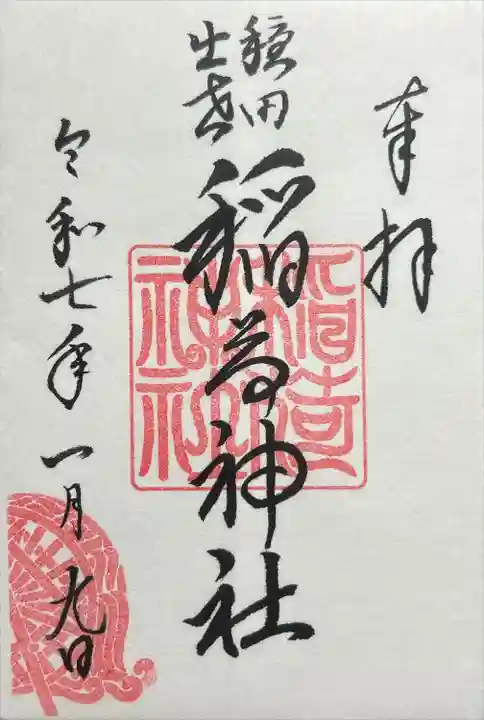 奉拝
穏田
出世
稲荷神社
令和七年一月九日
稲荷
神社